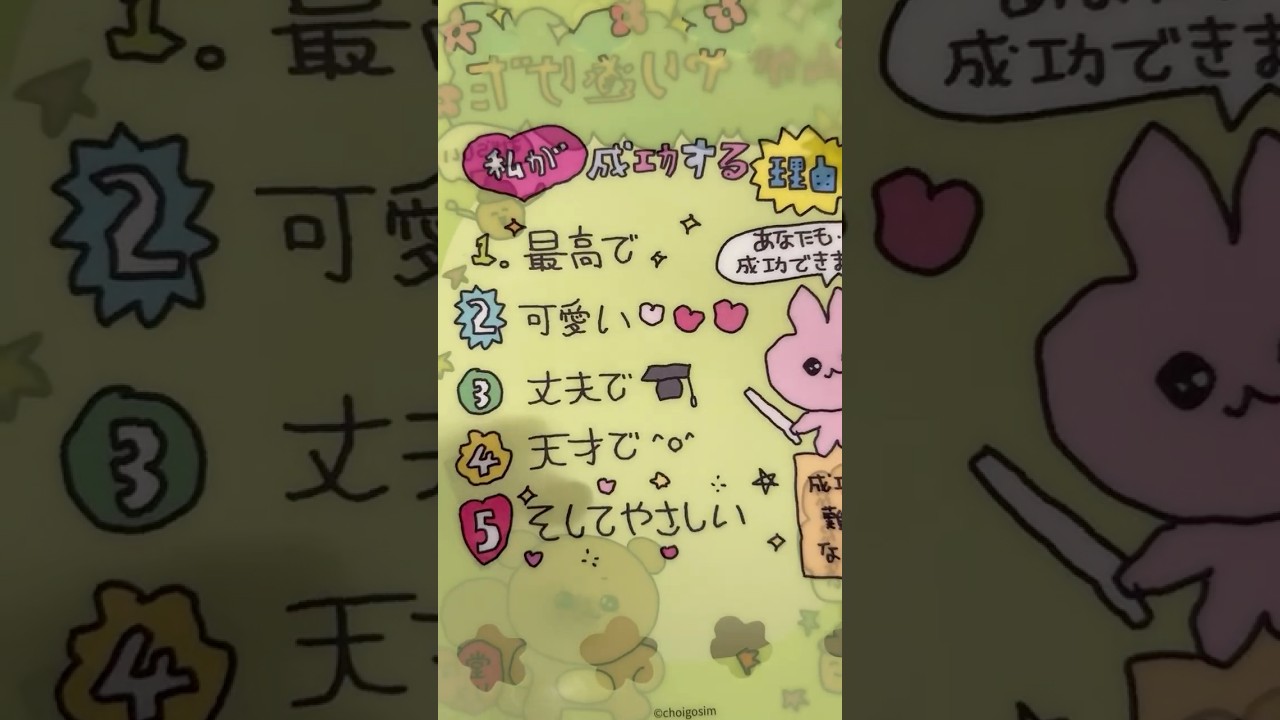 私が成功する理由
1. 最高で
2 可愛い
3 丈夫で
4 天才で^o^
5 そしてやさしい
あなたも
成功できま
成功
難
な
©choigosim